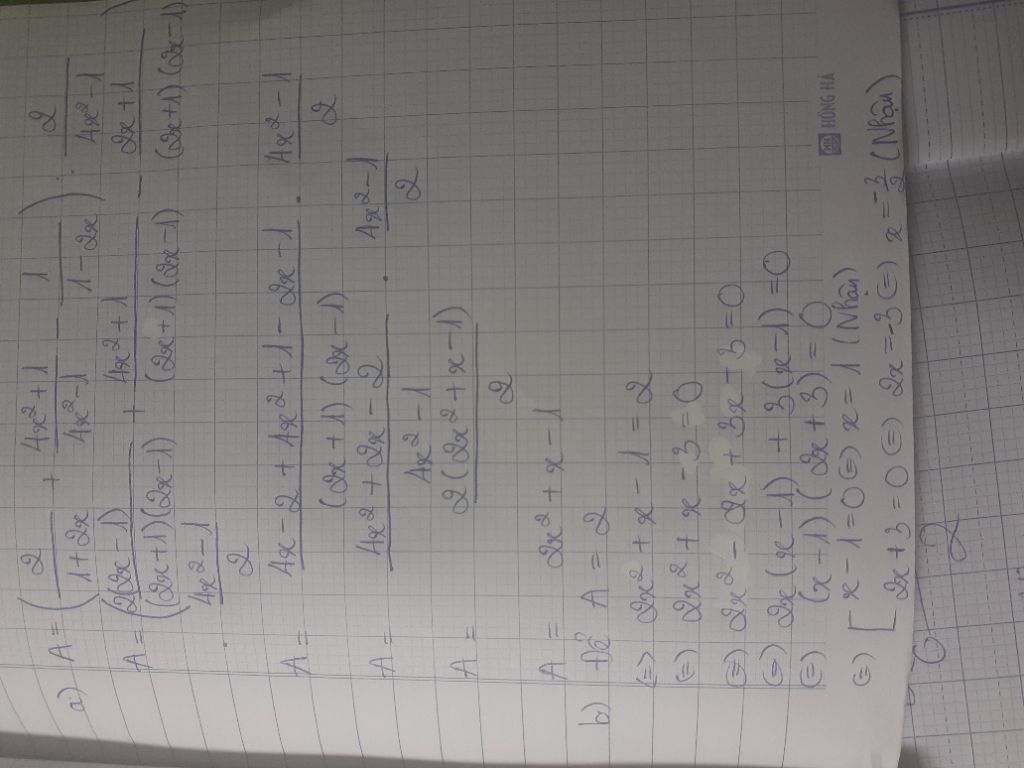 a) A = (2/(1+2x) + (4x²+1)/(4x²-1) - 1/(1-2x)) : 2/(4x²-1)
A = (2(2x-1)/((2x+1)(2x-1)) + (4x²+1)/((2x+1)(2x-1)) - (2x+1)/((2x+1)(2x-1)))
. (4x²-1)/2
A = (4x-2+4x²+1-2x-1)/((2x+1)(2x-1)) . (4x²-1)/2
A = (4x²+2x-2)/(4x²-1) . (4x²-1)/2
A = 2(2x²+x-1)/2
A = 2x²+x-1
b) Để A = 2
(=) 2x²+x-1=2
(=) 2x²+x-3=0
(=) 2x²-2x+3x-3=0
(=) 2x(x-1)+3(x-1)=0
(=) (x-1)(2x+3)=0
(=) [ x-1=0 (=) x=1 (Nhận)
2x+3=0 (=) 2x=-3 (=) x=-3/2 (Nhận)
HỒNG HÀ